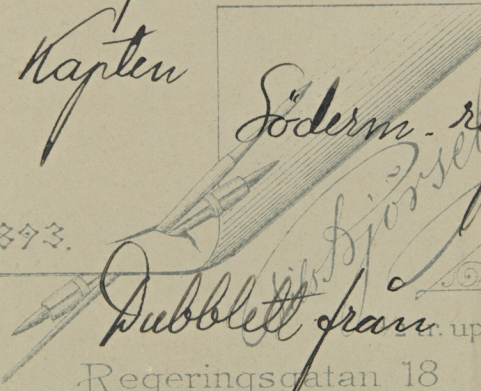 Kapten
Söderm. r
893.
Dubblett från
tr. up
Regeringsgatan 18